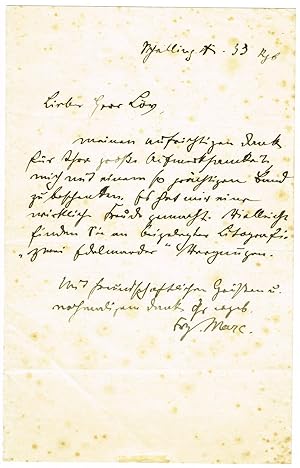 Schellingstr. 33 Rgb
Lieber Herr Löv,
meinen aufrichtigen Dank
für Ihre große Aufmerksamkeit
mich mit einem so prächtigen Band
zu beschenken. Es hat mir eine
wirklich Freude gemacht. Vielleicht
finden Sie an beigelegter Litografie
„zwei Edelmarder“ Vergnügen.
Mit freundschaftlichen Grüßen u.
nochmaligem Dank Ihr ergeb.
Frz. Marc.